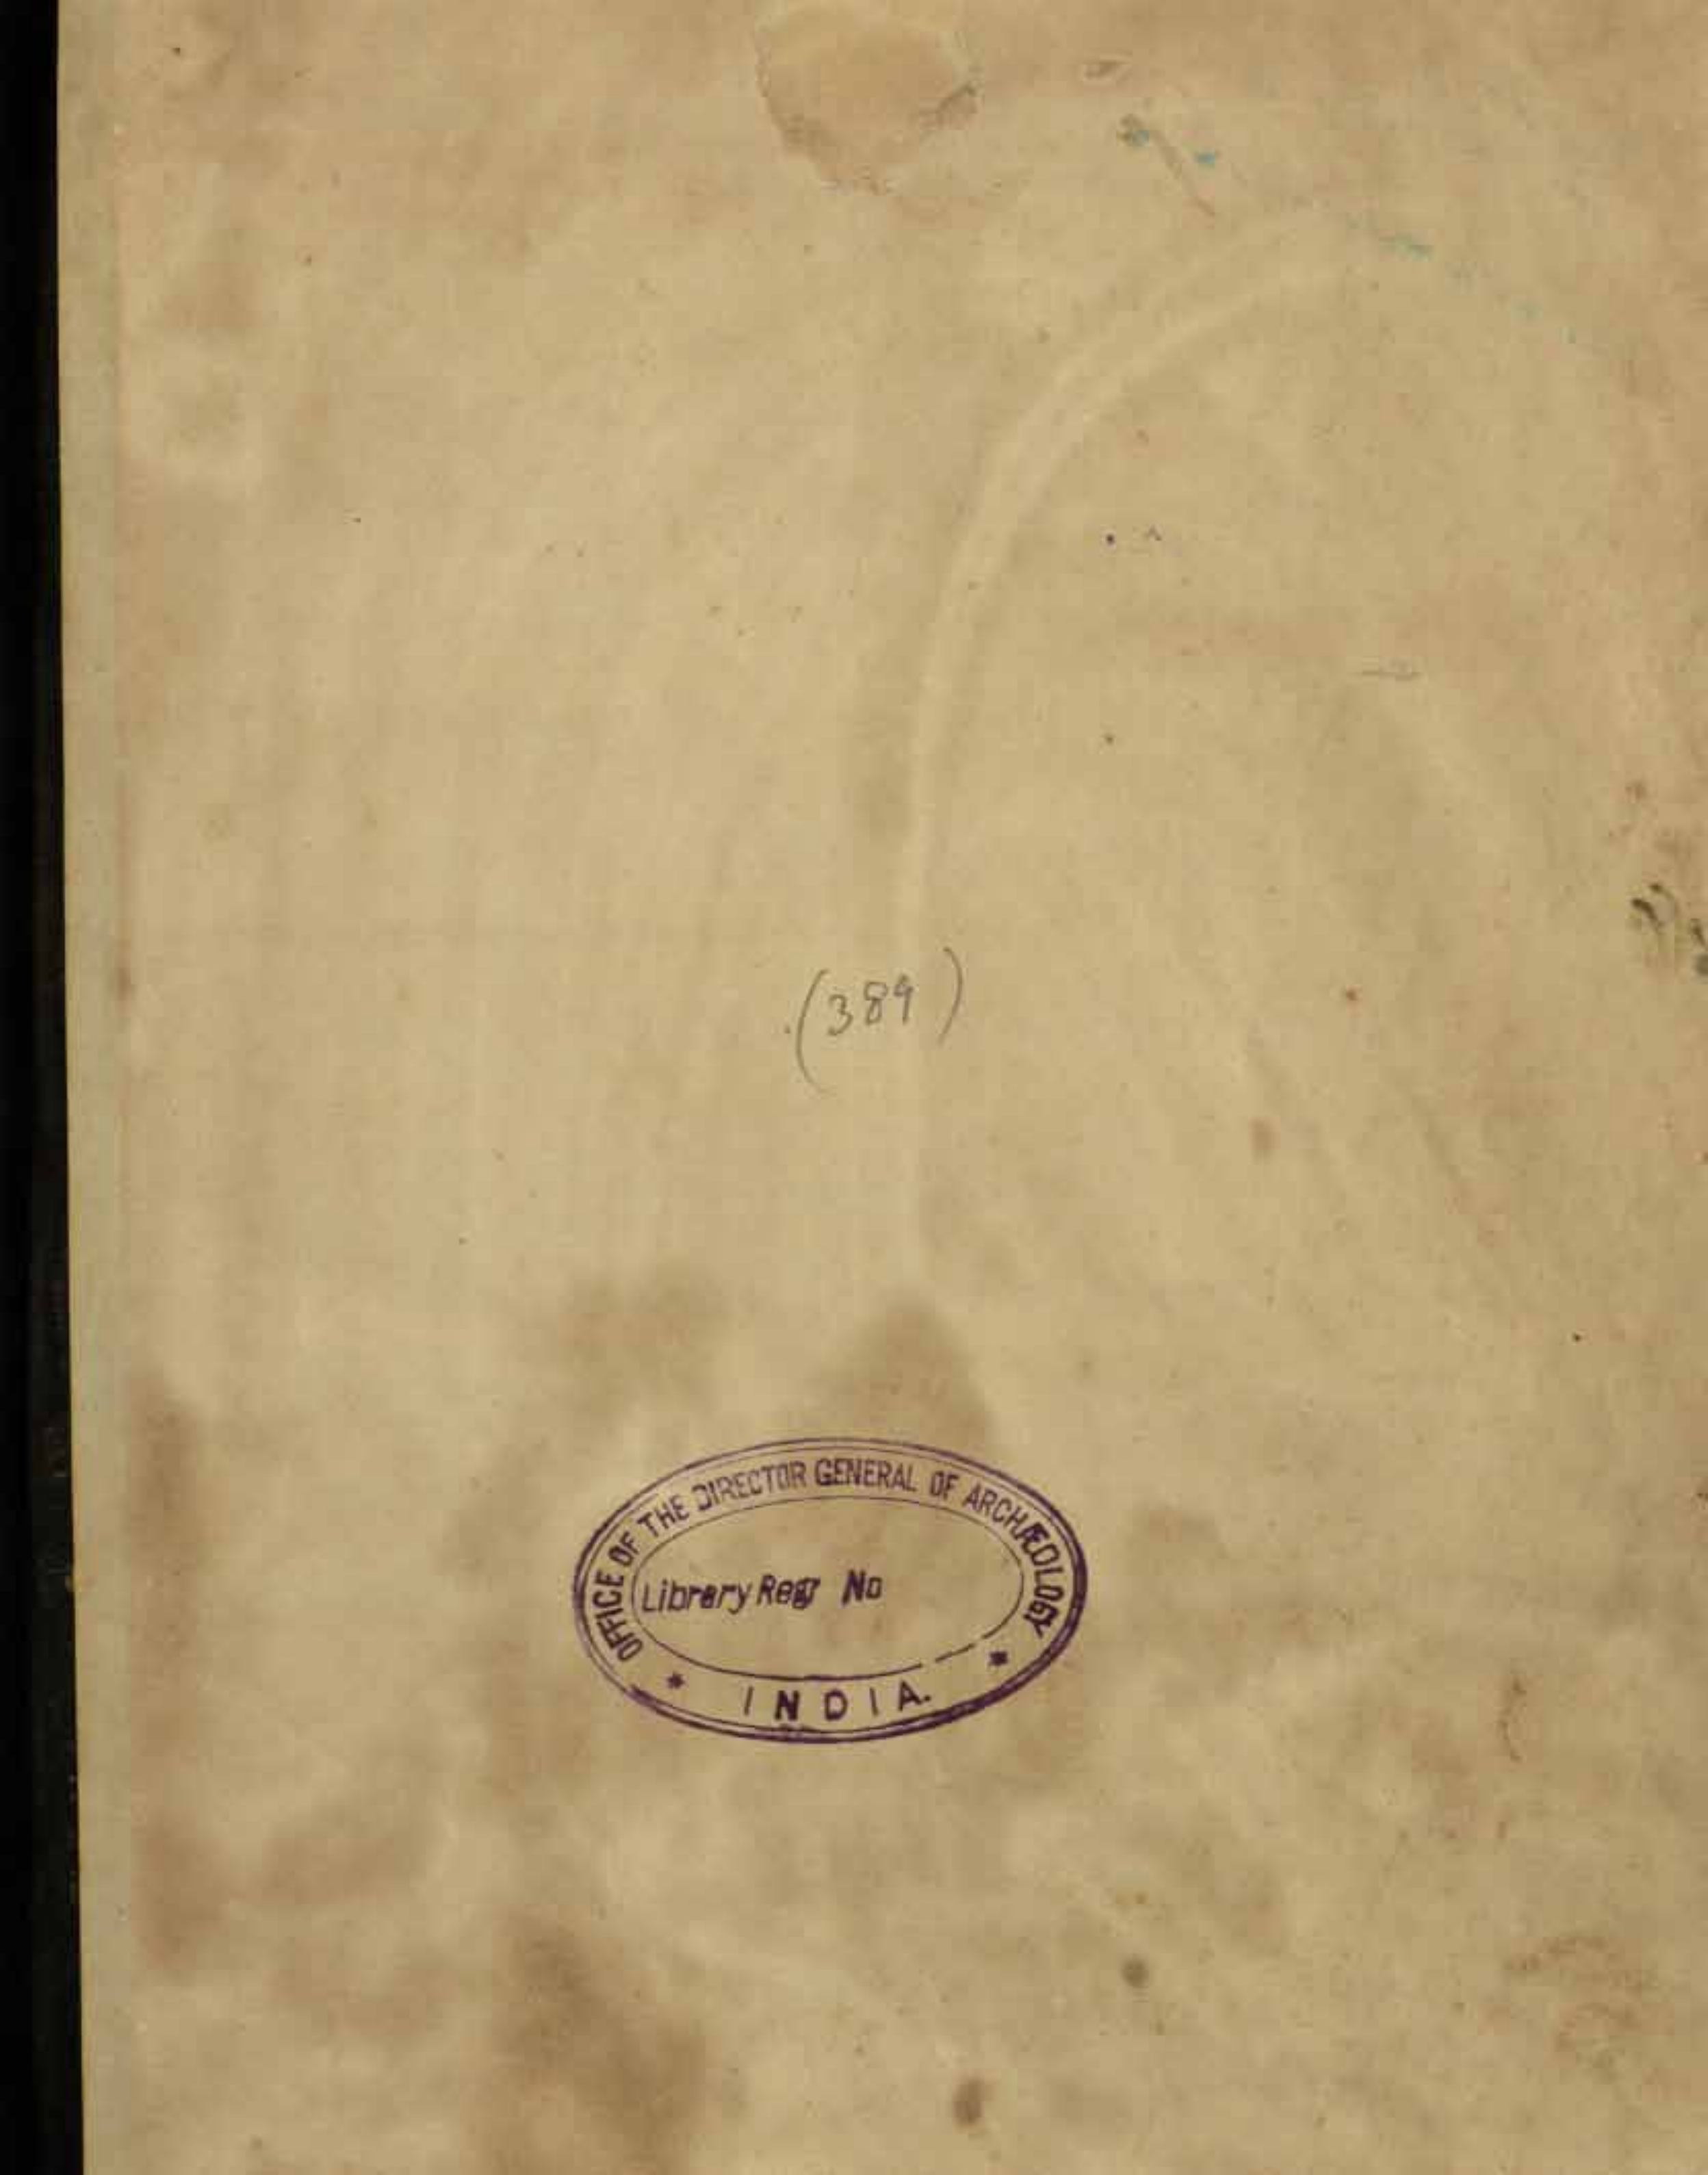 (389)
OFFICE OF THE DIRECTOR GENERAL OF ARCHÆOLOGY
Library Regr No
* INDIA. *